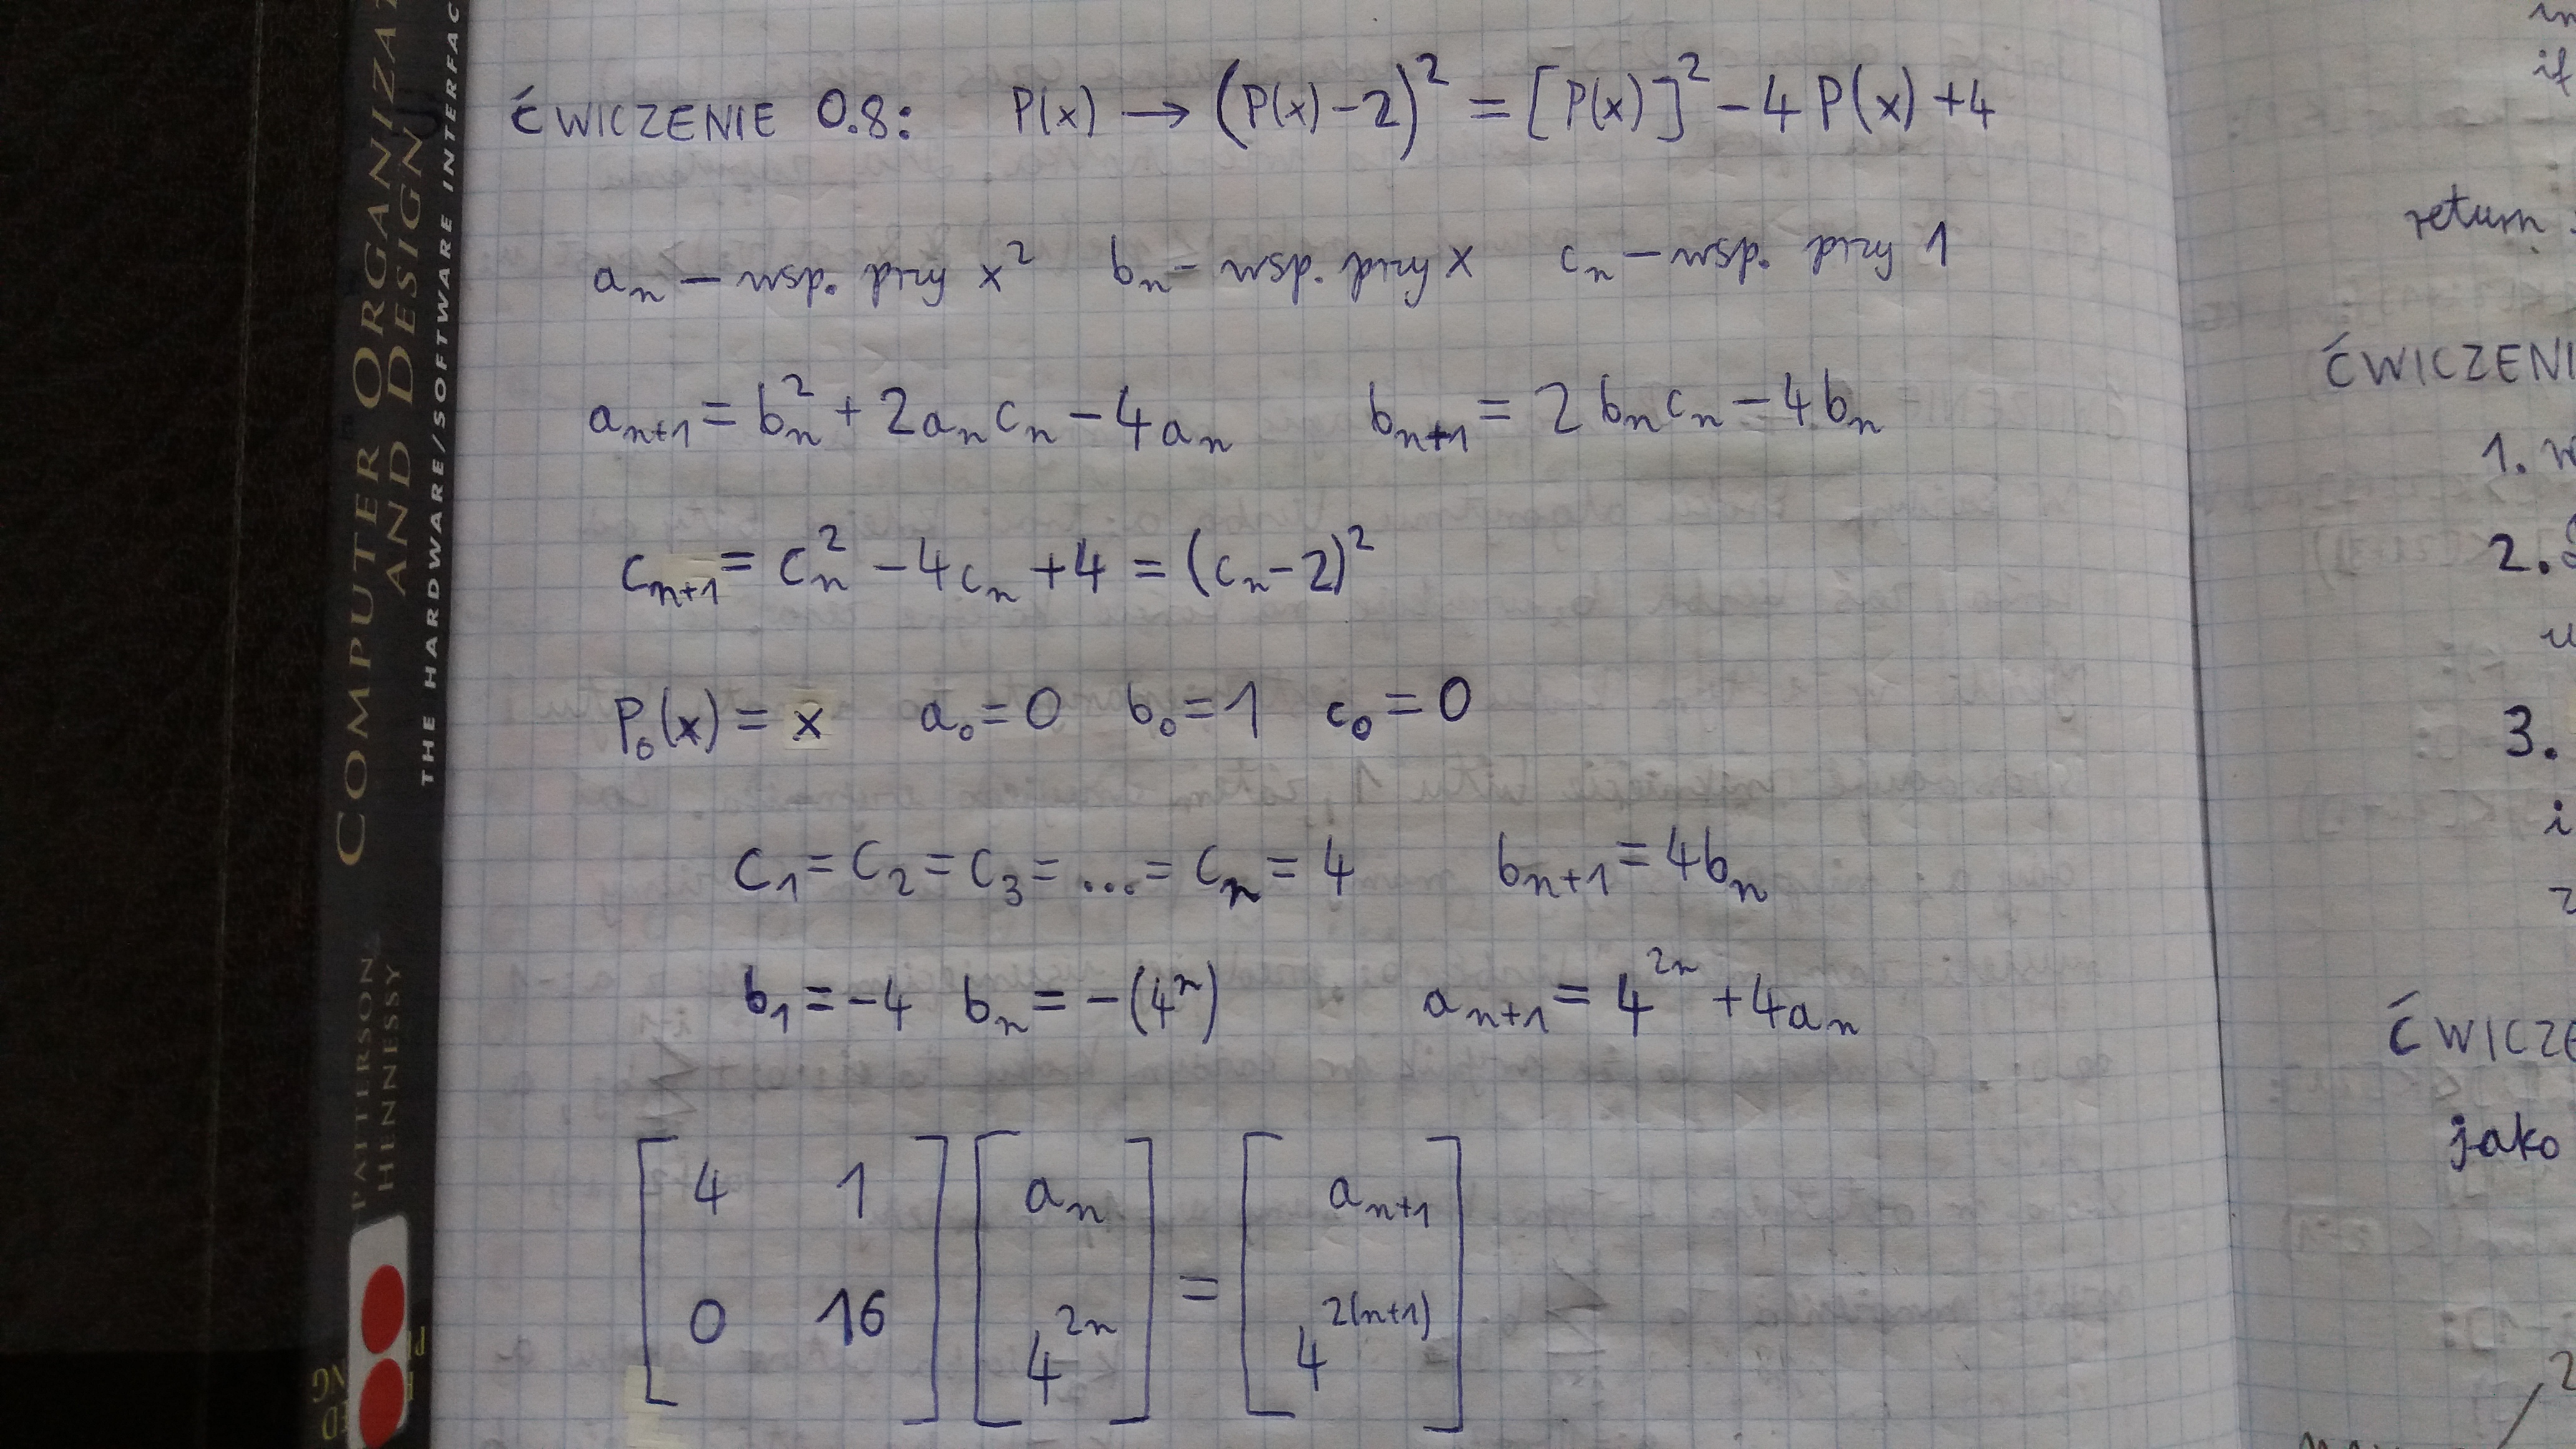 COMPUTER ORGANIZAT
AND DESIGN
THE HARDWARE/SOFTWARE INTERFAC
PATTERSON
HENNESSY
ĆWICZENIE 0.8: P(x) → (P(x)-2)² = [P(x)]² - 4P(x) + 4
aₙ - wsp. przy x² bₙ - wsp. przy x cₙ - wsp. przy 1
aₙ₊₁ = bₙ² + 2aₙcₙ - 4aₙ bₙ₊₁ = 2bₙcₙ - 4bₙ
cₙ₊₁ = cₙ² - 4cₙ + 4 = (cₙ-2)²
P₀(x) = x a₀ = 0 b₀ = 1 c₀ = 0
C₁ = C₂ = C₃ = ... = Cₙ = 4 bₙ₊₁ = 4bₙ
b₁ = -4 bₙ = -(4ⁿ) aₙ₊₁ = 4²ⁿ + 4aₙ
[4 1] [aₙ] = [aₙ₊₁]
[0 16] [4²ⁿ] = [4²⁽ⁿ⁺¹⁾]
if
return
ĆWICZENI
1. w
2.
3.
i
ĆWICZE
jako